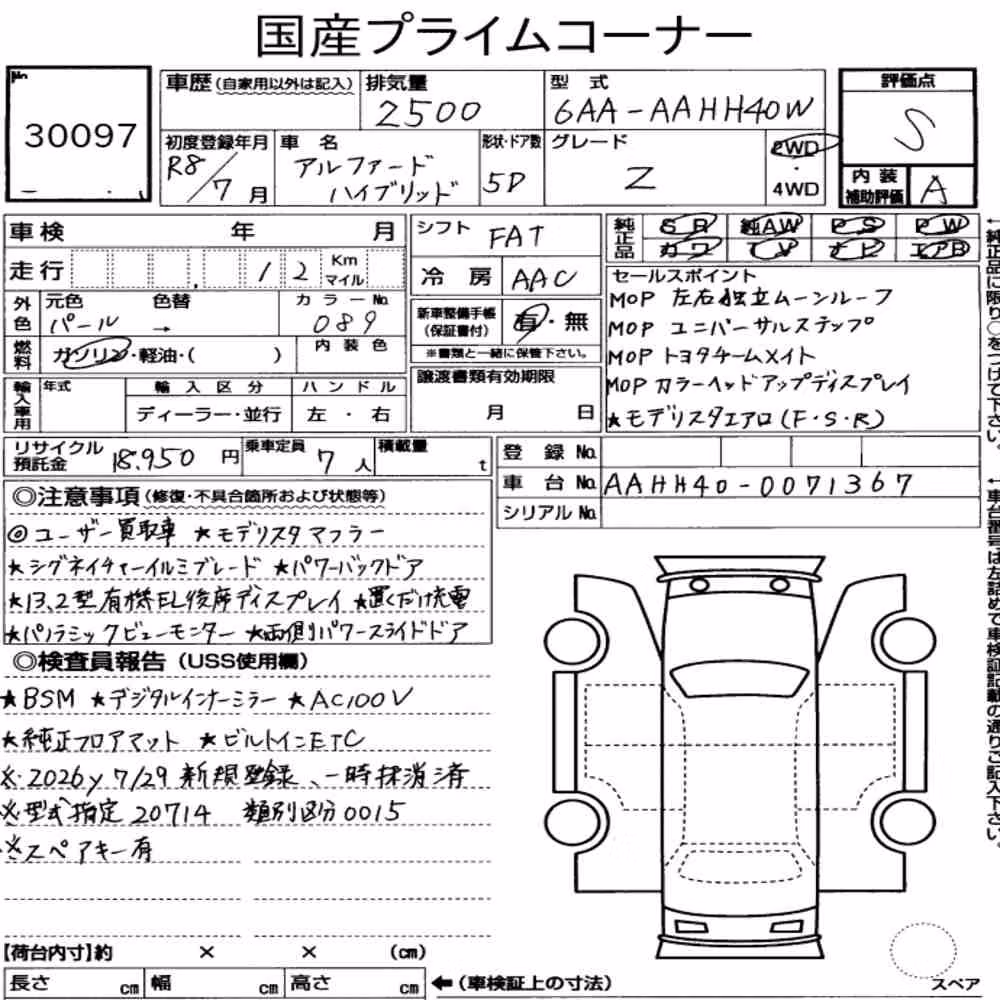 国産プライムコーナー
No
30097
車歴(自家用以外は記入)
排気量
2500
型式
6AA-AAHH40W
評価点
S
初度登録年月
R8/7月
車名
アルファード
ハイブリッド
形状・ドア数
5D
グレード
Z
2WD
・
4WD
内装
補助評価
A
車検 年 月
シフト FAT
純正品 SR 純AW PS PW
カワ TV ナビ エアB
走行 , 12 Km
マイル
冷房 AAC
外色 元色 色替 カラーNo.
パール → 089
新車整備手帳
(保証書付) 有・無
※書類と一緒に保管下さい。
燃料 ガソリン・軽油・( ) 内装色
輸入車用 年式 輸入区分 ハンドル
ディーラー・並行 左・右
譲渡書類有効期限
月 日
セールスポイント
MOP 左右独立ムーンルーフ
MOP ユニバーサルステップ
MOP トヨタチームメイト
MOP カラーヘッドアップディスプレイ
★モデリスタエアロ(F・S・R)
←純正品に限り○をつけて下さい。
リサイクル
預託金 18,950円
乗車定員 7人
積載量 t
登録No.
車台No. AAHH40-0071367
シリアルNo.
←車台番号は左詰めで車検証記載の通りご記入下さい。
◎注意事項(修復・不具合箇所および状態等)
◎ユーザー買取車 ★モデリスタマフラー
★シグネイチャーイルミブレード ★パワーバックドア
★13.2型有機EL後席ディスプレイ ★置くだけ充電
★パノラミックビューモニター ★両側パワースライドドア
◎検査員報告(USS使用欄)
★BSM ★デジタルインナーミラー ★AC100V
★純正フロアマット ★ビルトインETC
※2026y 7/29 新規登録、一時抹消済
※型式指定20714 類別区分0015
※スペアキー有
【荷台内寸】約 × × (cm)
長さ cm 幅 cm 高さ cm ←(車検証上の寸法)
スペア